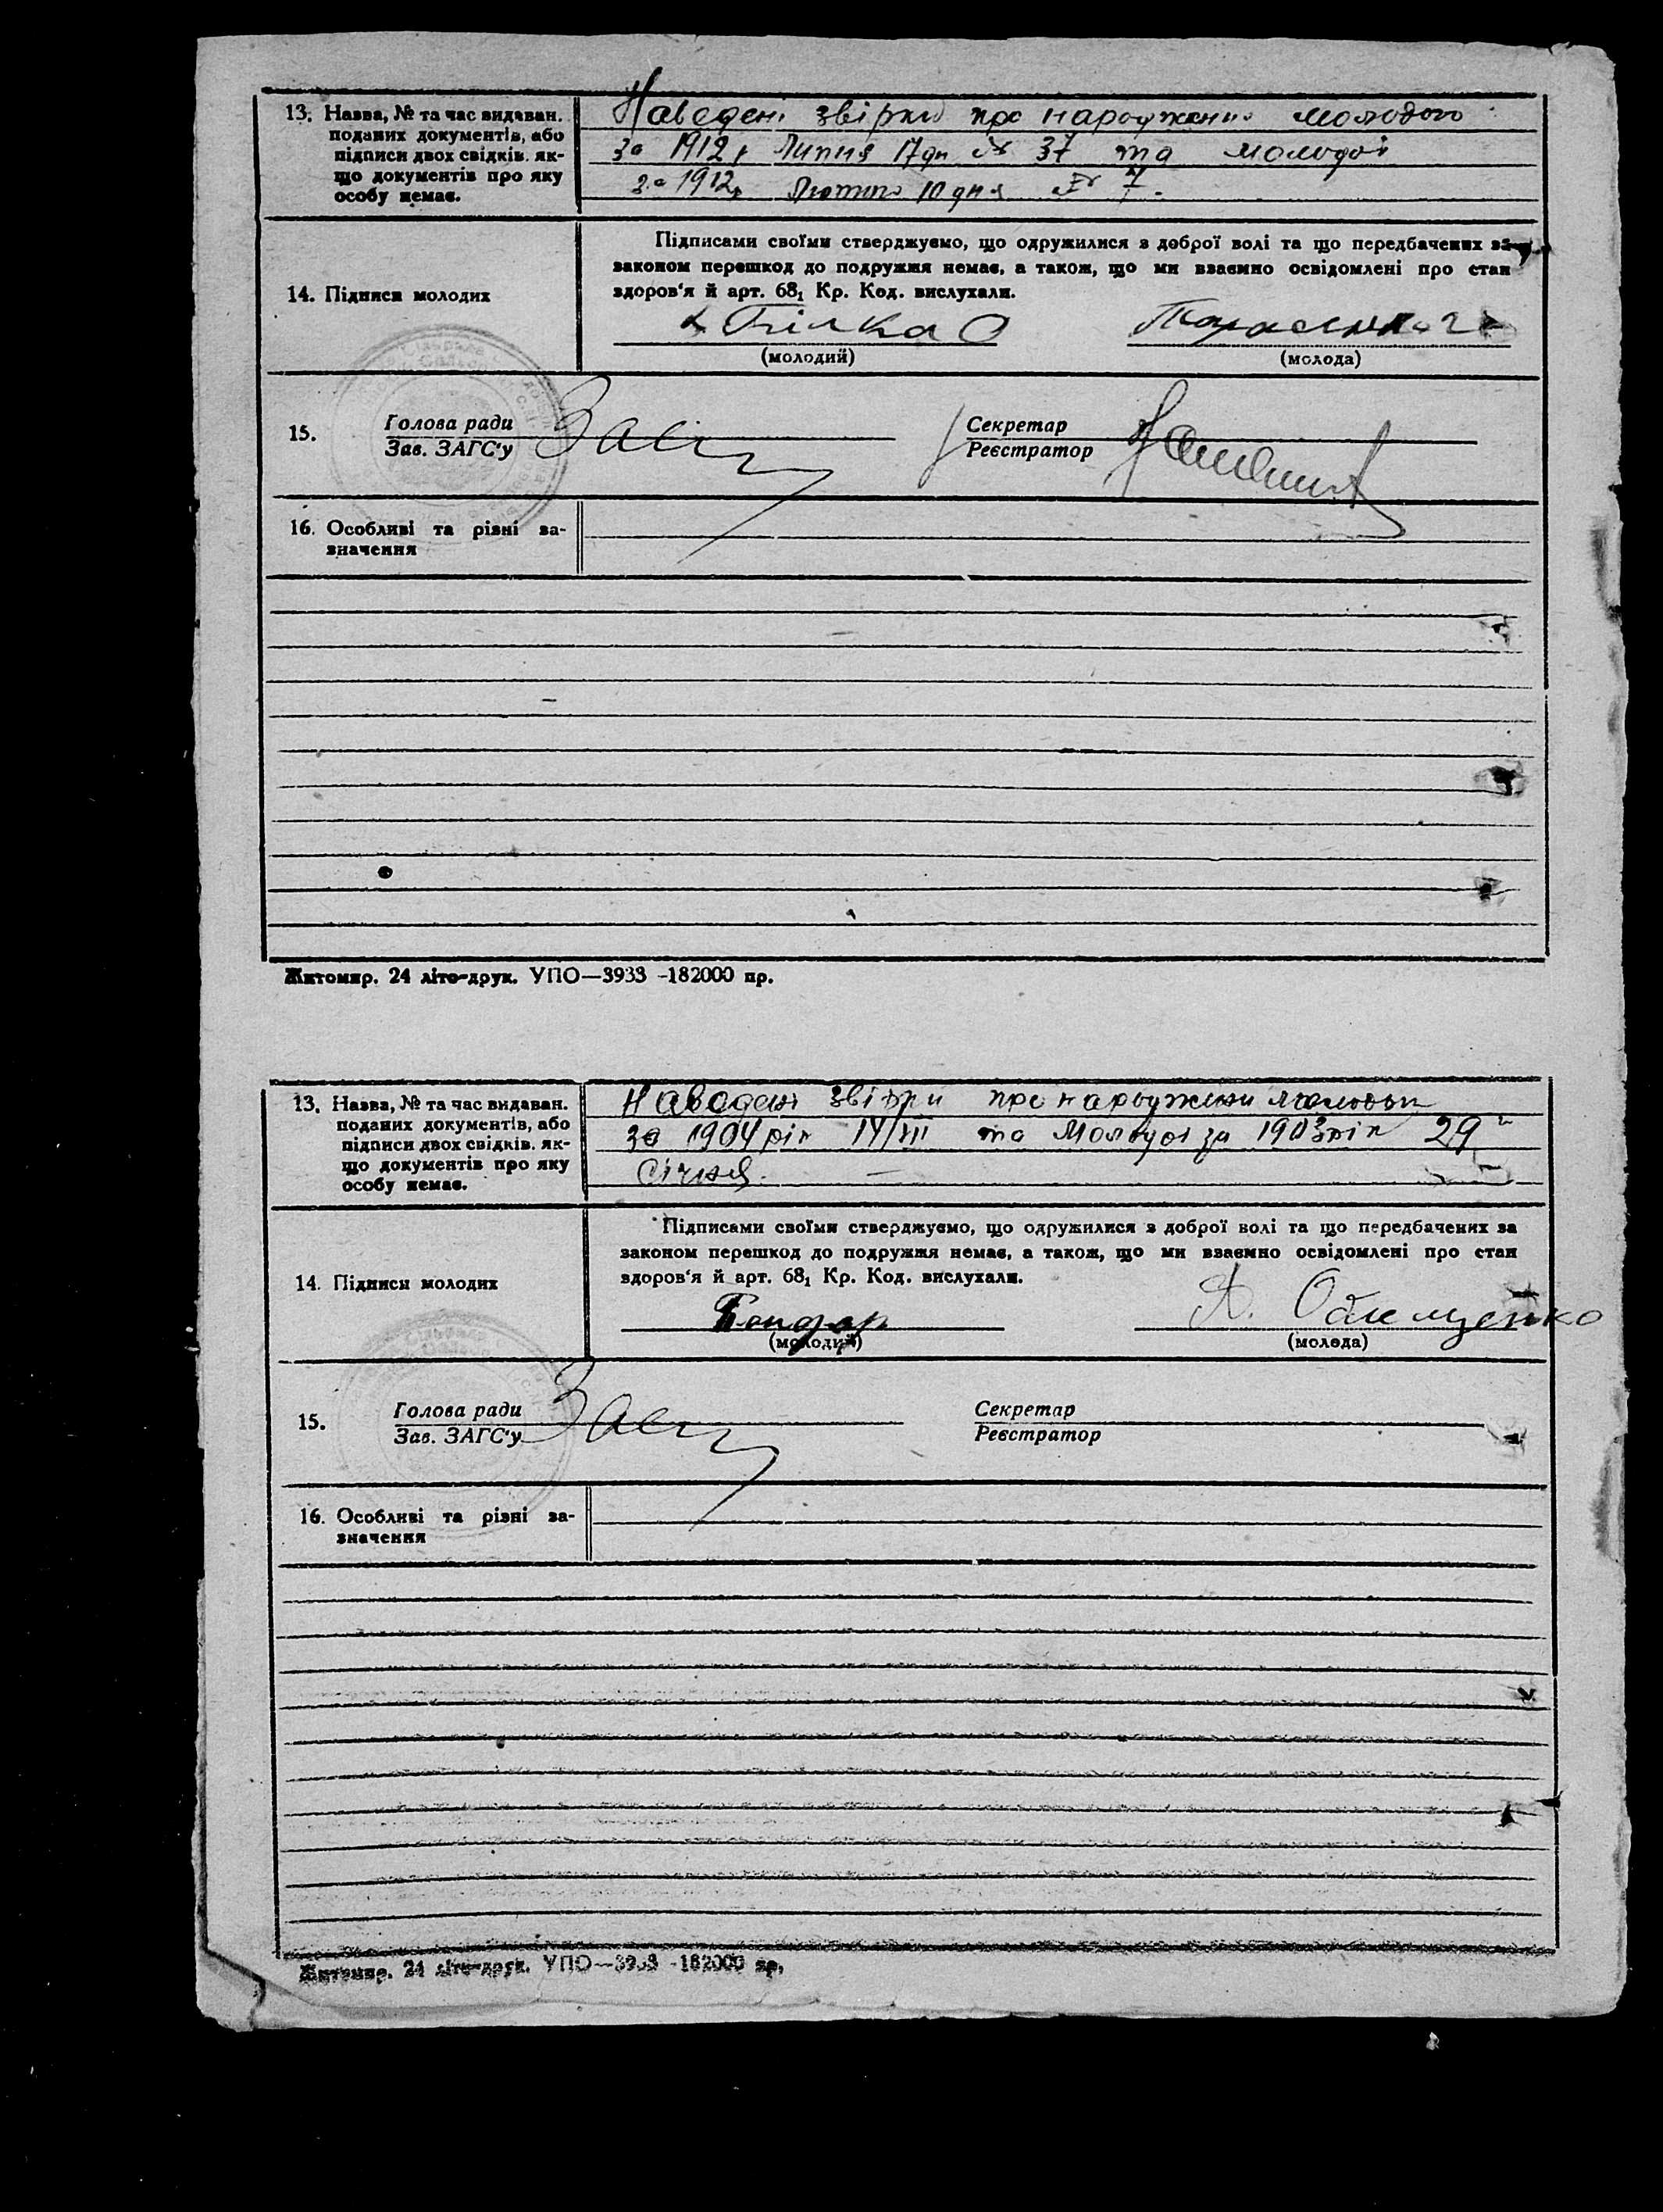 13. Назва, № та час видаван. поданих документів, або підписи двох свідків, якщо документів про яку особу немає.
Наведені звірки про народження молодого
за 1912 р Липня 17 дн № 37 та молодої
за 1912 р Лютого 10 дня № 7.
14. Підписи молодих
Підписами своїми стверджуємо, що одружилися з доброї волі та що передбачених за
законом перешкод до подружжя немає, а також, що ми взаємно освідомлені про стан
здоров'я й арт. 68₁ Кр. Код. вислухали.
Білка О
(молодий)
(молода)
15.
Голова ради
Зав. ЗАГС'у
Секретар
Реєстратор
16. Особливі та різні за-
значення
Житомир. 24 літо-друк. УПО—3933 -182000 пр.
13. Назва, № та час видаван.
поданих документів, або
підписи двох свідків, як-
що документів про яку
особу немає.
Наведені звірки про народження
за 1904 рік 14/VII та Молодої за 1903 рік 29
січня.
14. Підписи молодих
Підписами своїми стверджуємо, що одружилися з доброї волі та що передбачених за
законом перешкод до подружжя немає, а також, що ми взаємно освідомлені про стан
здоров'я й арт. 68₁ Кр. Код. вислухали.
Бондар
(молодий)
(молода)
15.
Голова ради
Зав. ЗАГС'у
Секретар
Реєстратор
16. Особливі та різні за-
значення
Житомир. 24 літо-друк. УПО—3933 -182000 пр.